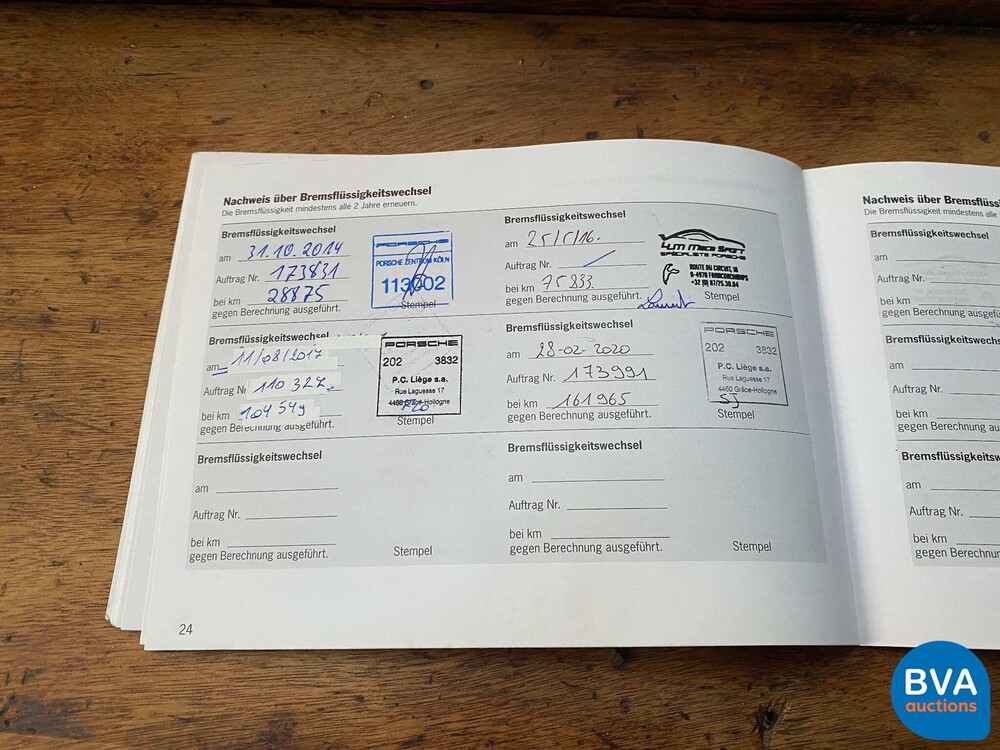 Nachweis über Bremsflüssigkeitswechsel
Die Bremsflüssigkeit mindestens alle 2 Jahre erneuern.
Bremsflüssigkeitswechsel
am 31.10.2014
Auftrag Nr. 173831
bei km 28875
gegen Berechnung ausgeführt.
PORSCHE
PORSCHE ZENTRUM KÖLN
113002
Stempel
Bremsflüssigkeitswechsel
am 25/5/16.
Auftrag Nr.
bei km 75933
gegen Berechnung ausgeführt.
SPÉCIALISTE PORSCHE
ROUTE DU CIRCUIT, 18
B-4970 FRANCORCHAMPS
Stempel
Bremsflüssigkeitswechsel
am 11/08/2017
Auftrag Nr. 110 327
bei km 104549
gegen Berechnung ausgeführt.
PORSCHE
202 3832
P.C. Liège s.a.
Rue Laguesse 17
4460 Grâce-Hollogne
Stempel
Bremsflüssigkeitswechsel
am 28-02-2020
Auftrag Nr. 173991
bei km 161965
gegen Berechnung ausgeführt.
PORSCHE
202 3832
P.C. Liège s.a.
Rue Laguesse 17
4460 Grâce-Hollogne
SJ
Stempel
Bremsflüssigkeitswechsel
am
Auftrag Nr.
bei km
gegen Berechnung ausgeführt.
Stempel
Bremsflüssigkeitswechsel
am
Auftrag Nr.
bei km
gegen Berechnung ausgeführt.
Stempel
24
Nachweis über Bremsflüssi
Die Bremsflüssigkeit mindestens alle
Bremsflüssigkeitswechs
am
Auftrag Nr.
bei km
gegen Berechnung au
Bremsflüssigkeitswechs
am
Auftrag Nr.
bei km
gegen Berechnung au
Bremsflüssigkeitsw
am
Auftrag Nr.
bei km
gegen Berechnung
BVA
auctions